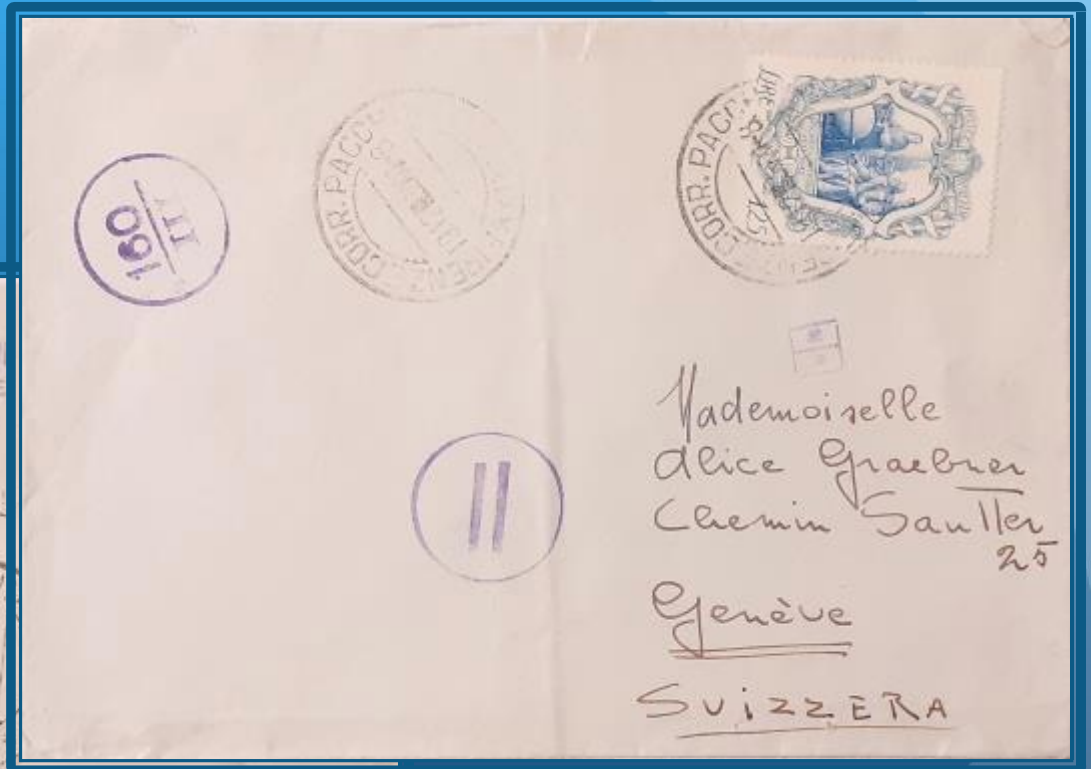 160
III
CORR. PACC
CORR. PACC
125
LIRE
||
Mademoiselle
Alice Graebner
Chemin Sautter
25
Genève
SVIZZERA